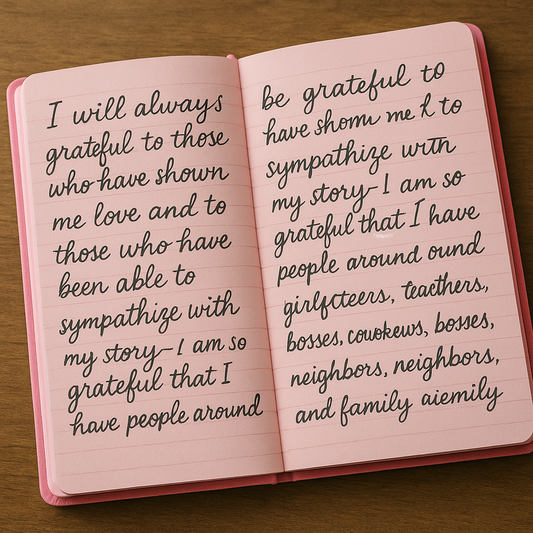 I will always
grateful to those
who have shown
me love and to
those who have
been able to
sympathize with
my story—I am so
grateful that I
have people around
be grateful to
have shom me to
sympathize with
my story—I am so
grateful that I have
people around ound
girlfcteers, teacthers,
bosses, couokews, bosses,
neighbors, neighbors,
and family aiemily